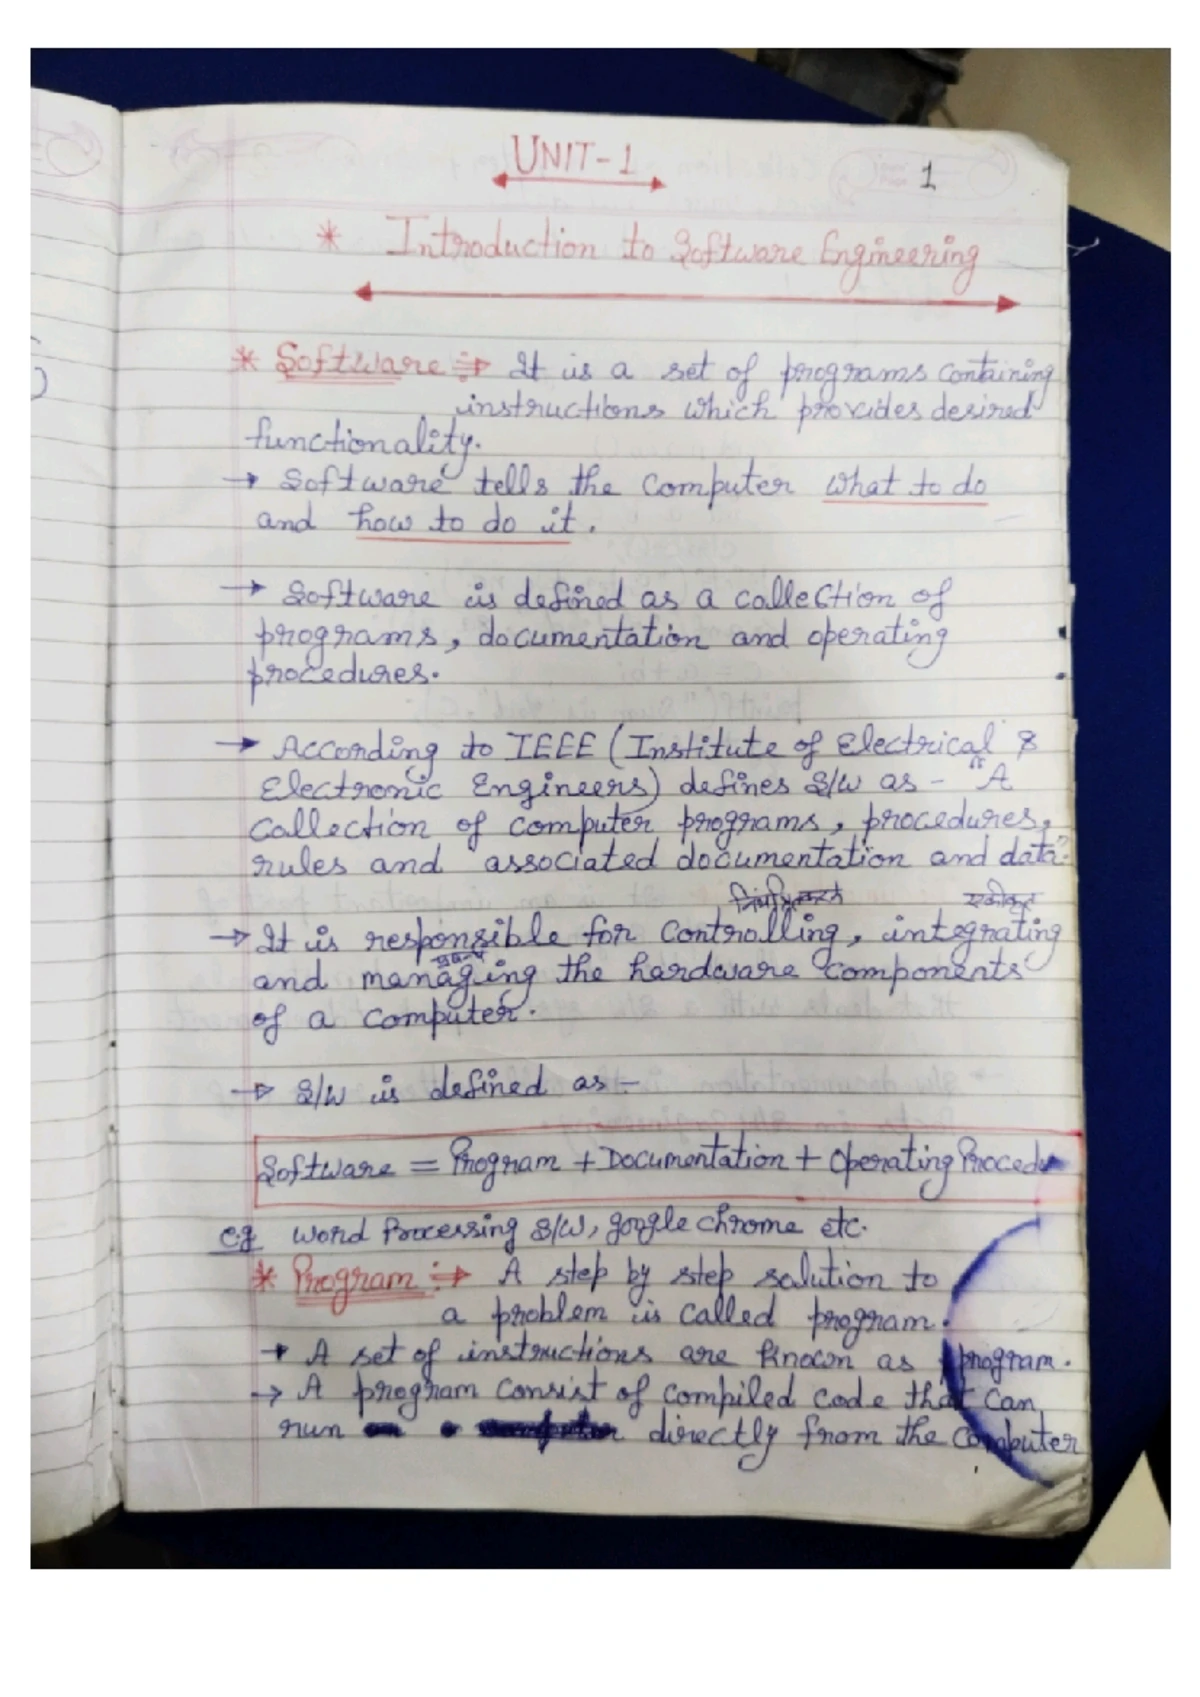 UNIT-1
1
* Introduction to Software Engineering
* Software :→ It is a set of programs containing
instructions which provides desired
functionality.
→ Software tells the computer what to do
and how to do it.
→ Software is defined as a collection of
programs, documentation and operating
procedures.
→ According to IEEE (Institute of Electrical &
Electronic Engineers) defines S/W as - "A
collection of computer programs, procedures,
rules and associated documentation and data."
→ It is responsible for controlling, integrating
प्रबन्ध
and managing the hardware components
of a computer.
→ S/W is defined as -
Software = Program + Documentation + Operating Procedu
e.g. Word Processing S/W, google chrome etc.
* Program :→ A step by step solution to
a problem is called program.
→ A set of instructions are known as program.
→ A program consist of compiled code that can
run directly from the computer